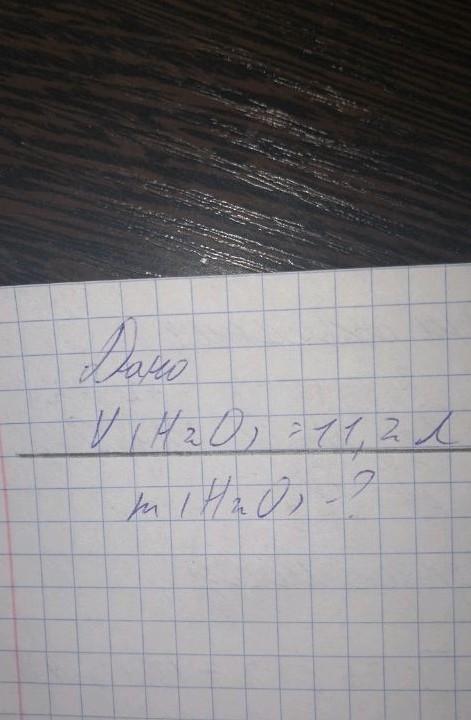 Дано
V(H2O) = 11,2 л
m(H2O) - ?